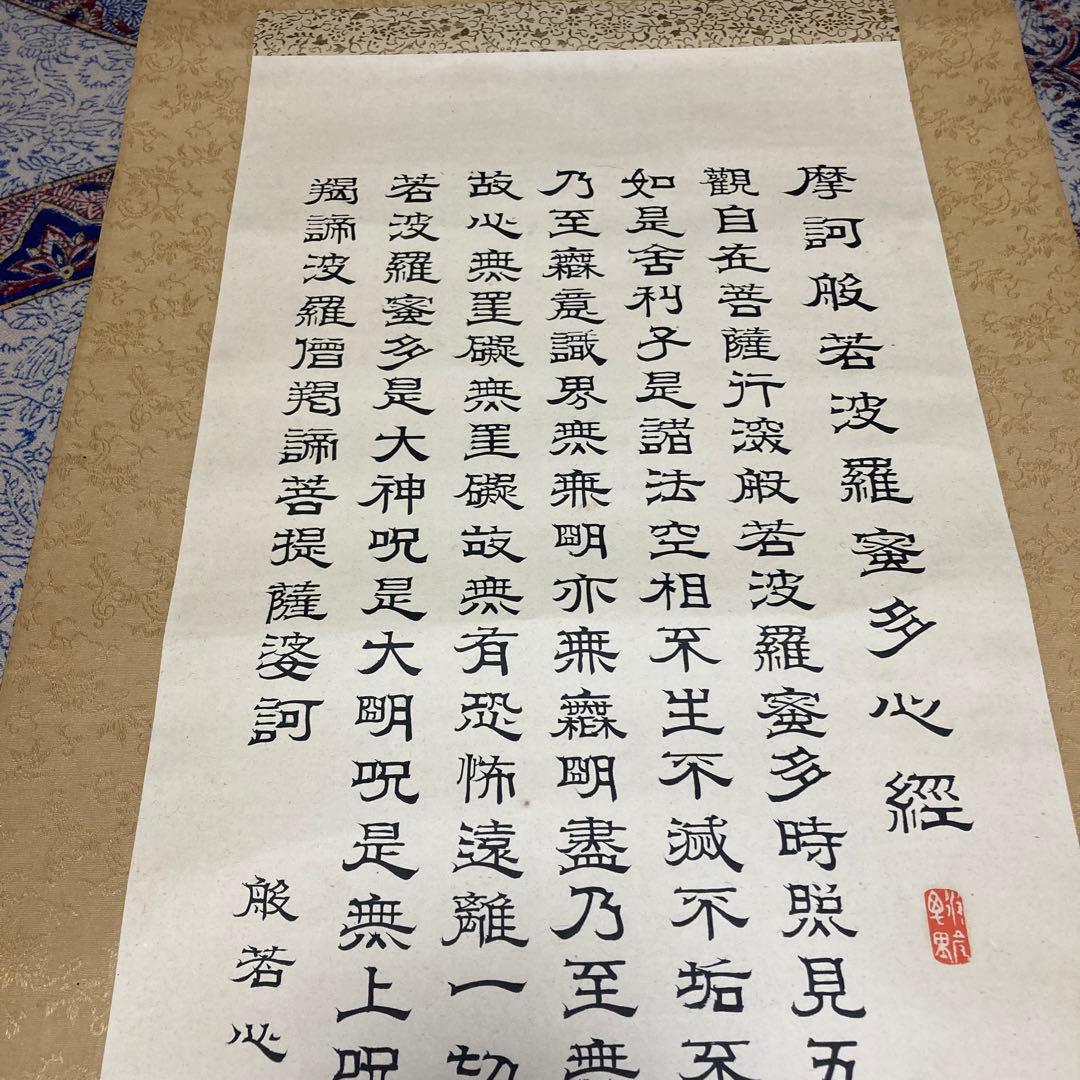 摩訶般若波羅蜜多心經
觀自在菩薩行深般若波羅蜜多時照見五
如是舍利子是諸法空相不生不滅不垢不
乃至無意識界無無明亦無無明盡乃至無
故心無罣礙無罣礙故無有恐怖遠離一切
若波羅蜜多是大神呪是大明呪是無上呪
羯諦波羅僧羯諦菩提薩婆訶
般若心